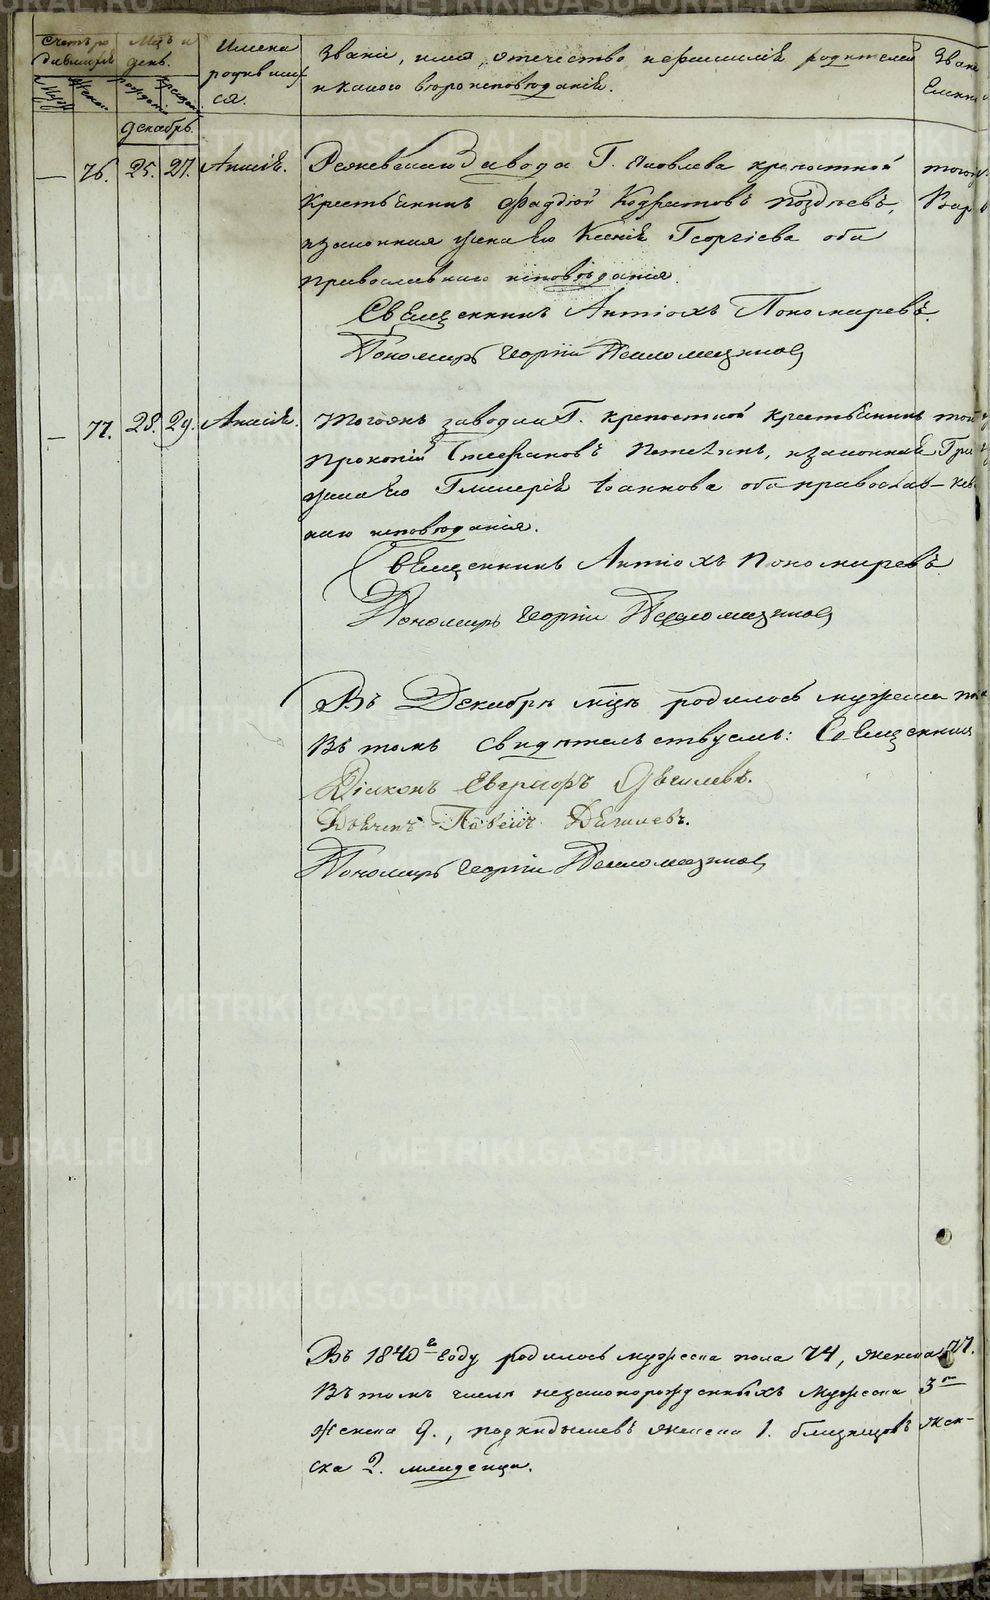 Счетъ ро
дившихся
Мцъ и
день.
Имена
родивших
ся.
Званіе, имя, отечество и фамилія родителей
и какого вѣроисповѣданія.
Зван
Муж
Женс
рожденія
крещенія
Декабрь.
— 76. 25. 27. Анисія. Режевскаго Завода Г. Яковлева крепостной
крестьянинъ Фаддѣй Кодратовъ Поздѣевъ,
и законная жена его Ксенія Георгіева оба
православнаго исповѣданія.
Священникъ Антіохъ Пономаревъ.
Пономарь Георгій
— 77. 28. 29. Анисія. Тогоже завода Г. крепостной крестьянинъ
Прокопій Стефановъ и законная
жена его Гликерія Іоаннова оба православ-
наго исповѣданія.
Священникъ Антіохъ Пономаревъ.
Пономарь Георгій
Въ Декабрѣ мцѣ родилось мужеска
Въ томъ свидѣтельствуемъ: Священник
Діаконъ
Дьячекъ Павелъ
Пономарь Георгій
Въ 1840 году родилось мужеска пола 74, женска 77.
Въ томъ числѣ незаконорожденныхъ мужеска 3
женска 9., подкидышевъ женска 1. близнецовъ жен-
ска 2. младенца.
METRIKI.GASO-URAL.RU